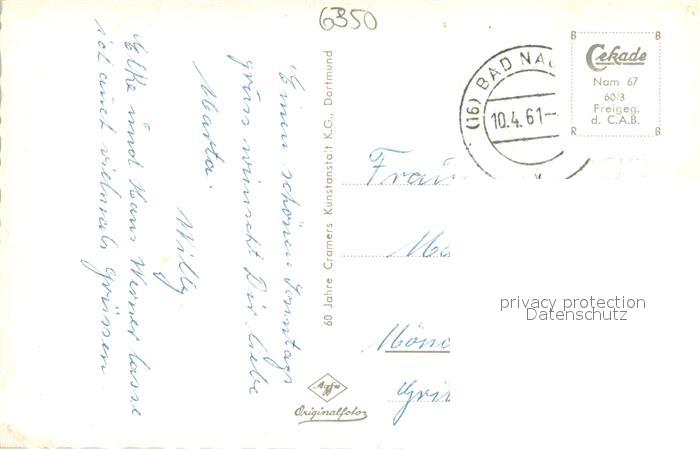 6350
Einen schönen Sonntags
grüss wünscht Dir liebe
Marta.
Willy.
Elke und Hans Werner lasse
ich auch vielmals grüssen.
60 Jahre Cramers Kunstanstalt K.G., Dortmund
Agfa
Originalfoto
(16) BAD NA
10.4.61--
B B
Cekade
Nam 67
60/3
Freigeg.
d. C.A.B.
R B
Frau
Mönc
privacy protection
Datenschutz